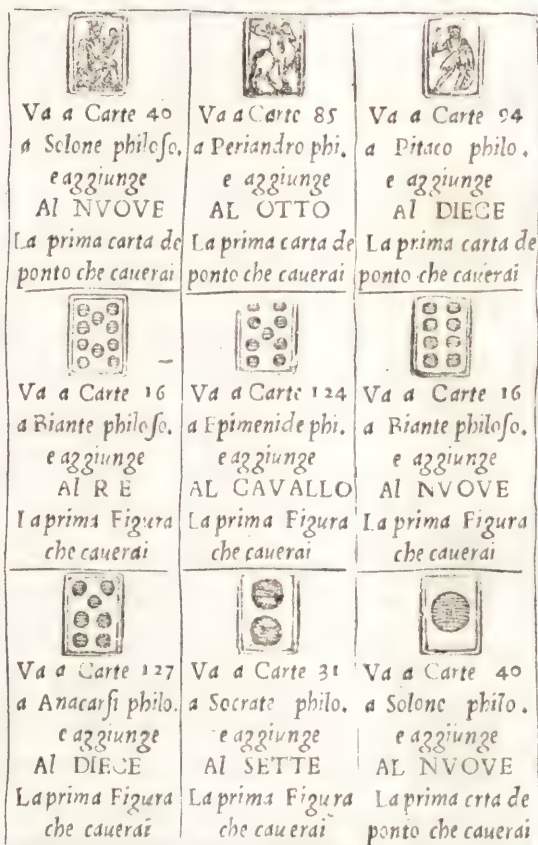 Va a Carte 40
a Solone philoso.
e aggiunge
Al NVOVE
La prima carta de
ponto che cauerai
Va a Carte 85
a Periandro phi.
e aggiunge
AL OTTO
La prima carta de
ponto che cauerai
Va a Carte 94
a Pitaco philo.
e aggiunge
Al DIECE
La prima carta de
ponto che cauerai
Va a Carte 16
a Biante philoso.
e aggiunge
Al RE
La prima Figura
che cauerai
Va a Carte 124
a Epimenide phi.
e aggiunge
AL CAVALLO
La prima Figura
che cauerai
Va a Carte 16
a Biante philoso.
e aggiunge
Al NVOVE
La prima Figura
che cauerai
Va a Carte 127
a Anacarsi philo.
e aggiunge
Al DIECE
La prima Figura
che cauerai
Va a Carte 31
a Socrate philo.
e aggiunge
Al SETTE
La prima Figura
che cauerai
Va a Carte 40
a Solone philo.
e aggiunge
AL NVOVE
La prima crta de
ponto che cauerai